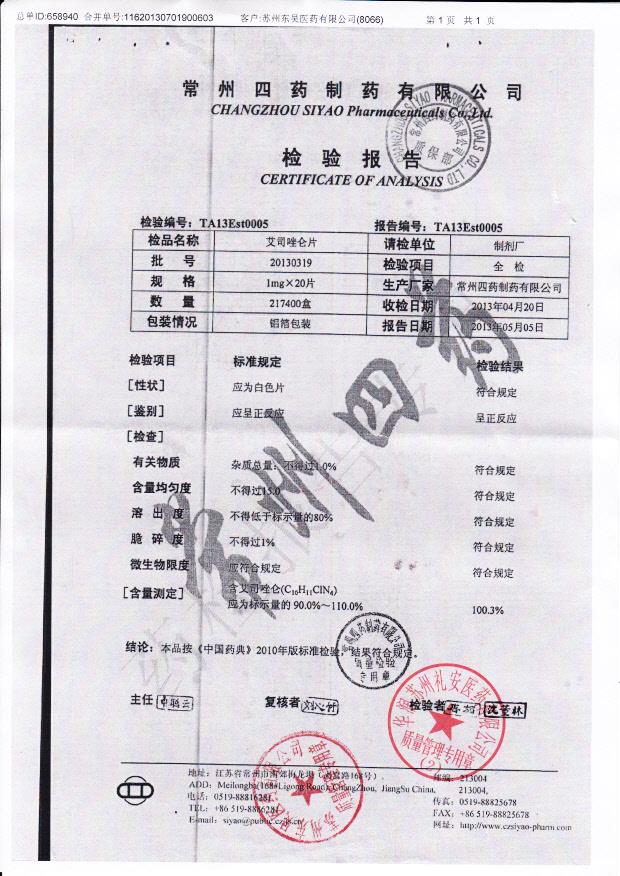 总单ID:658940 合并单号:11620130701900603 客户:苏州东吴医药有限公司(8066) 第 1 页 共 1 页
常州四药制药有限公司
CHANGZHOU SIYAO Pharmaceuticals Co.,Ltd.
CHANGZHOU SIYAO PHARMACEUTICALS CO., LTD
常州四药制药有限公司
质保部
检验报告
CERTIFICATE OF ANALYSIS
检验编号：TA13Est0005 报告编号：TA13Est0005
检品名称 艾司唑仑片 请检单位 制剂厂
批 号 20130319 检验项目 全 检
规 格 1mg×20片 生产厂家 常州四药制药有限公司
数 量 217400盒 收检日期 2013年04月20日
包装情况 铝箔包装 报告日期 2013年05月05日
检验项目 标准规定 检验结果
[性状] 应为白色片 符合规定
[鉴别] 应呈正反应 呈正反应
[检查]
有关物质 杂质总量：不得过1.0% 符合规定
含量均匀度 不得过15.0 符合规定
溶 出 度 不得低于标示量的80% 符合规定
脆 碎 度 不得过1% 符合规定
微生物限度 应符合规定 符合规定
[含量测定] 含艾司唑仑(C₁₆H₁₁ClN₄)
应为标示量的 90.0%～110.0% 100.3%
常州四药
结论：本品按《中国药典》2010年版标准检验，结果符合规定。
常州四药制药有限公司
质量检验
专用章
主任 复核者 检验者
华润苏州礼安医药有限公司
质量管理专用章
(2)
苏州东吴医药有限公司
地址：江苏省常州市南郊梅龙坝 邮编：213004
ADD: Meilongba(168#Ligong Road), ChangZhou, JiangSu China, 213004,
电话：0519-88816281 传真：0519-88825678
TEL: +86 519-8881628 FAX: +86 519-88825678
E-mail: siyao@public.cz.js.cn 网址：http://www.czsiyao-pharm.com